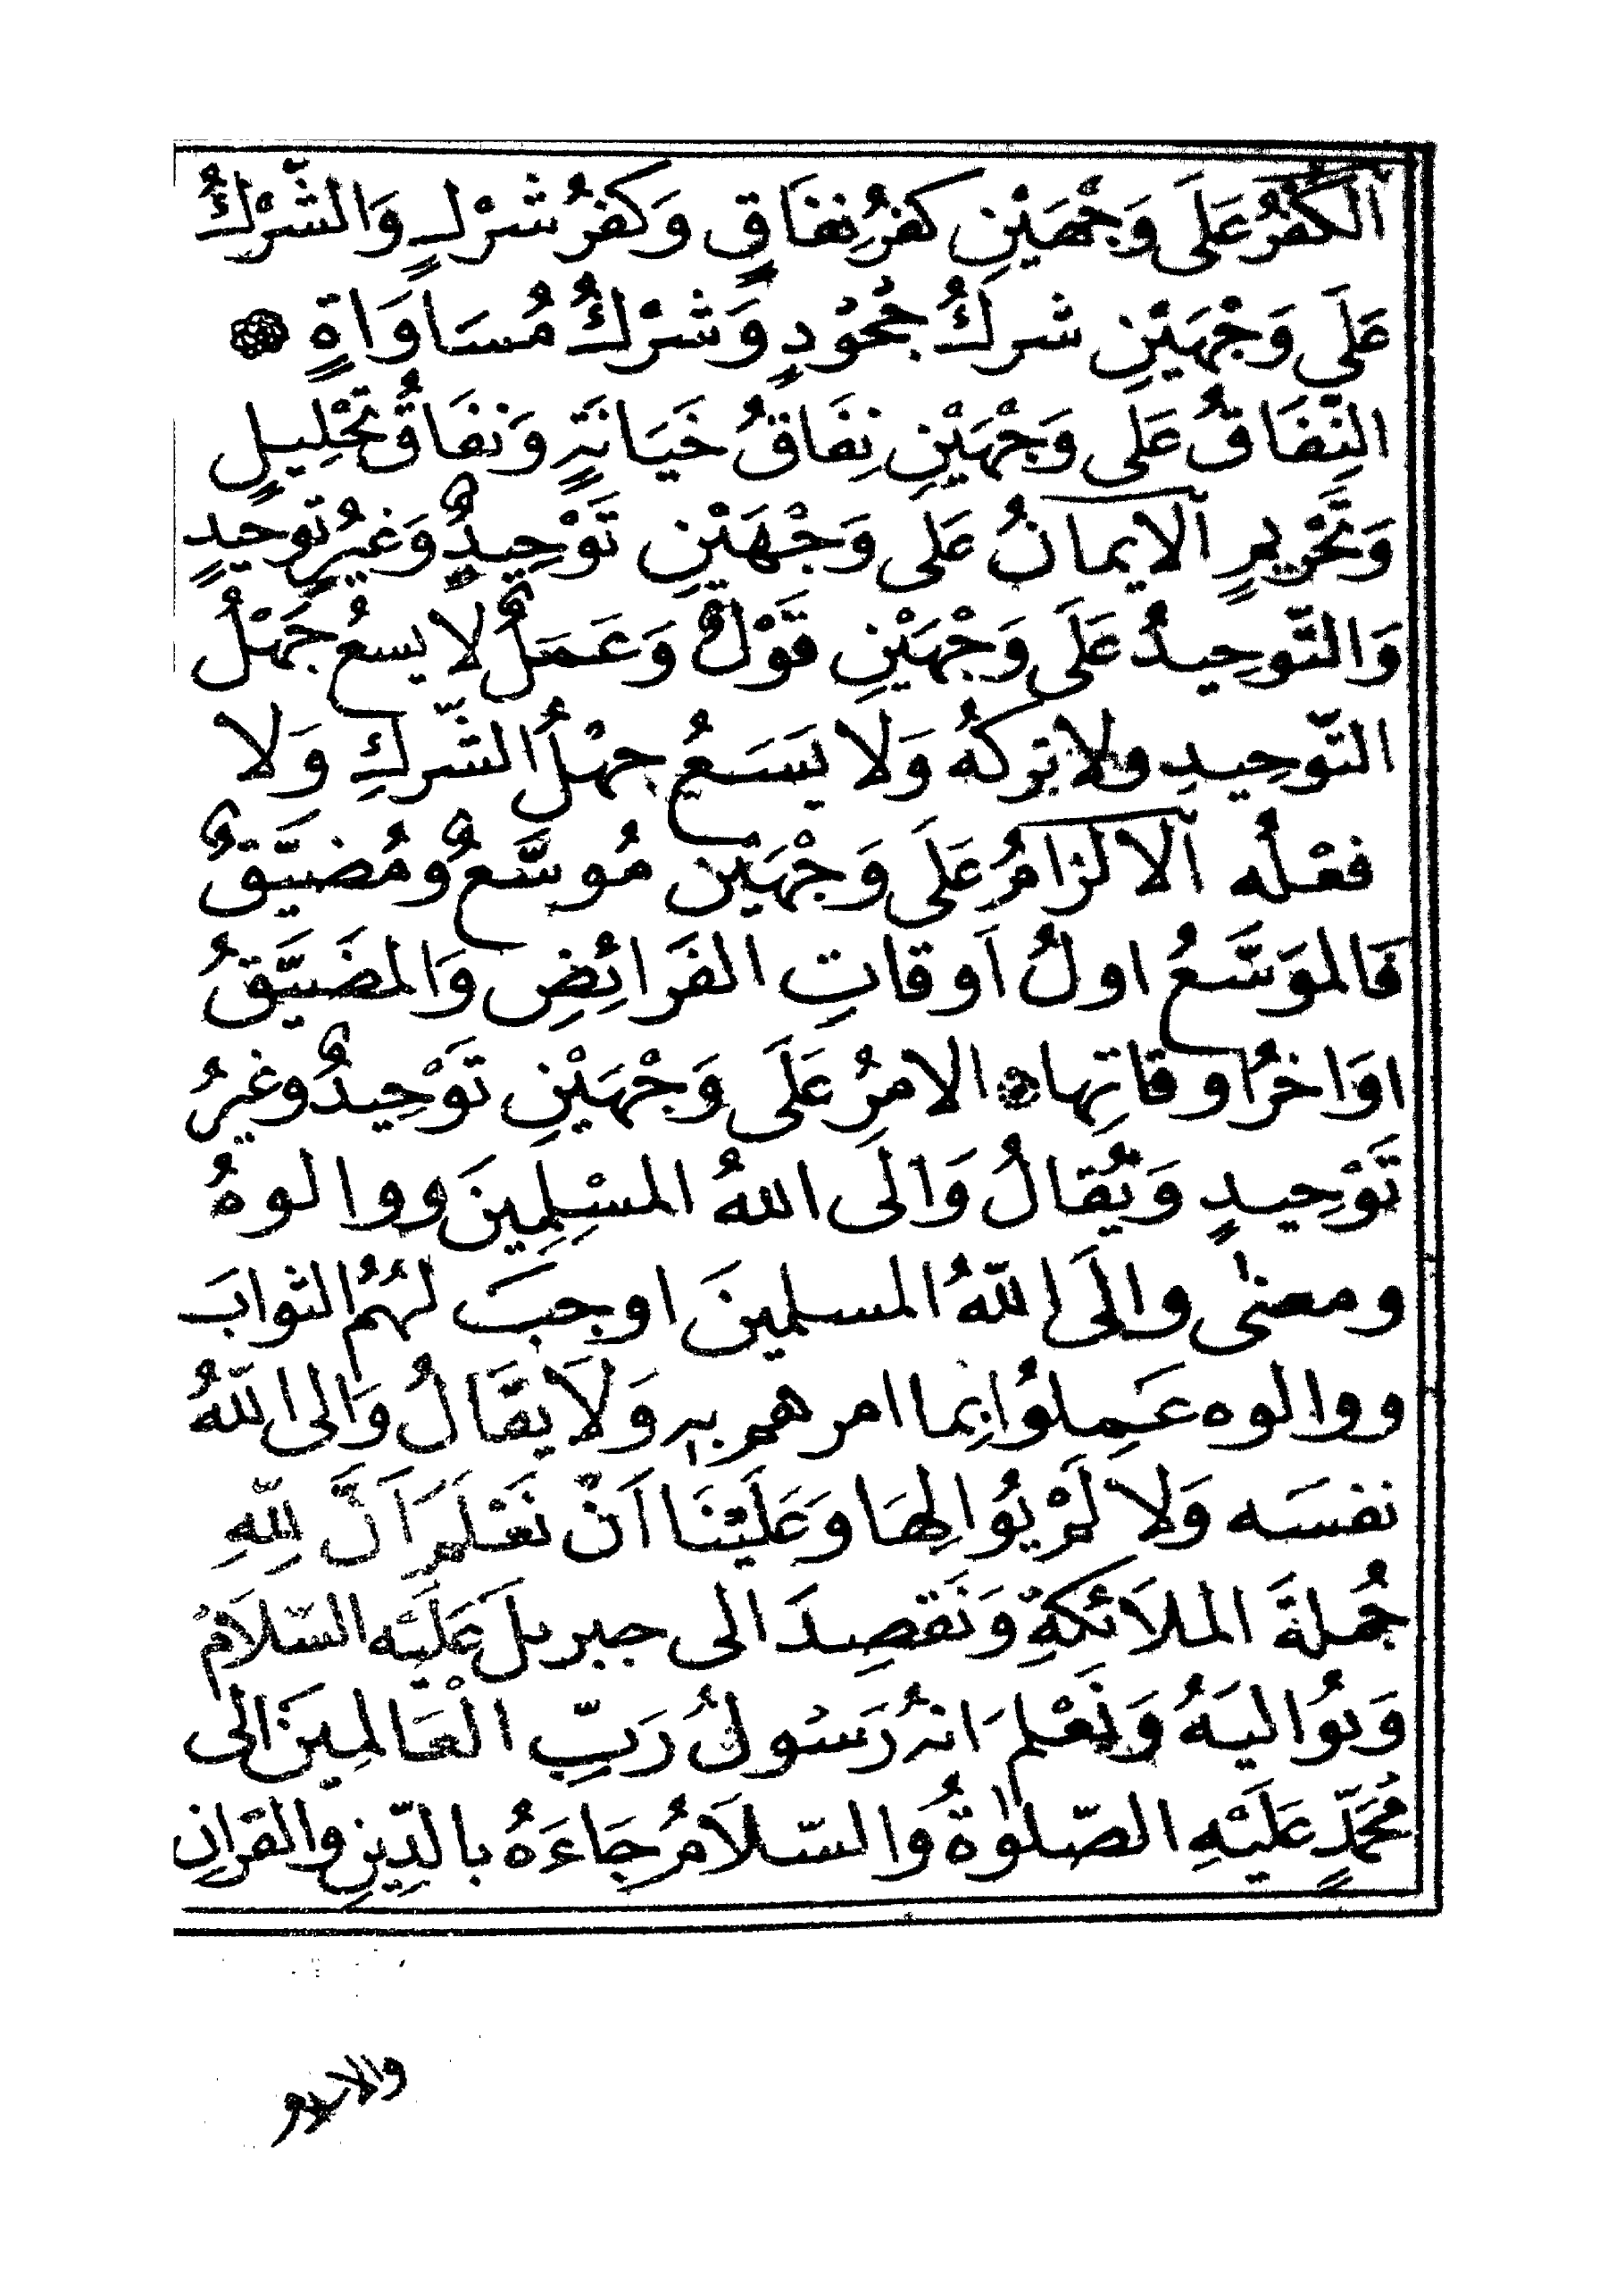 اَلكُفْرُ عَلَى وَجْهَيْنِ كفرُ نِفَاقٍ وَكفرُ شرْكٍ وَالشّرْكُ
عَلَى وَجْهَيْنِ شركُ جُحُوْدٍ وَشرْكُ مُسَاوَاةٍ
النِّفَاقُ عَلَى وَجْهَيْنِ نِفَاقُ خَيَانَةٍ وَنفَاقُ تَحْلِيلٍ
وَتَحْرِيمٍ اَلايمانُ عَلى وَجْهَيْنِ تَوْحِيدٌ وَغيرُ توحيدٍ
وَالتّوحِيدُ عَلَى وَجْهَيْنِ قَوْلٌ وَعَمَلٌ لا يسعُ جَهْلُ
التّوحِيدِ ولا تركُه وَلا يَسَعُ جهْلُ الشّركِ وَلا
فعْلُه اَلالزامُ عَلَى وَجْهَيْن مُوسَّعٌ ومُضيَّقٌ
فَالموَسَّعُ اولُ اَوقاتِ الفَرَائِضِ وَالمضَيَّقُ
اوَاخرُ اوقاتِها الامرُ عَلَى وَجْهَيْنِ تَوْحِيدٌ وغيرُ
تَوْحِيدٍ وَيُقالُ وَالَى اللهُ المسْلِمِينَ ووالوهُ
ومعنى والَى اللّهُ المسلمينَ اوجبَ لهُمُ الثوابَ
ووالوه عَمِلوُا بِما امرهم به وَلَا يقَالُ وَالى اللّهُ
نفسَه وَلا لَمْ يُوَالِهَا وَعَلَيْنَا اَنْ نَعْلَمَ اَنَّ لِلّهِ
جُملةَ الملَائكةِ وَنَقصِدَ الى جبريلَ عَلَيْه السّلَامُ
وَنوُاليَهُ وَنَعْلمَ انهُ رَسولُ رَبِّ الْعَالمِينَ الى
مُحَمّدٍ عَلَيْهِ الصّلوٰةُ وَالسّلَامُ جَاءَهُ بالدِّينِ والقرانِ